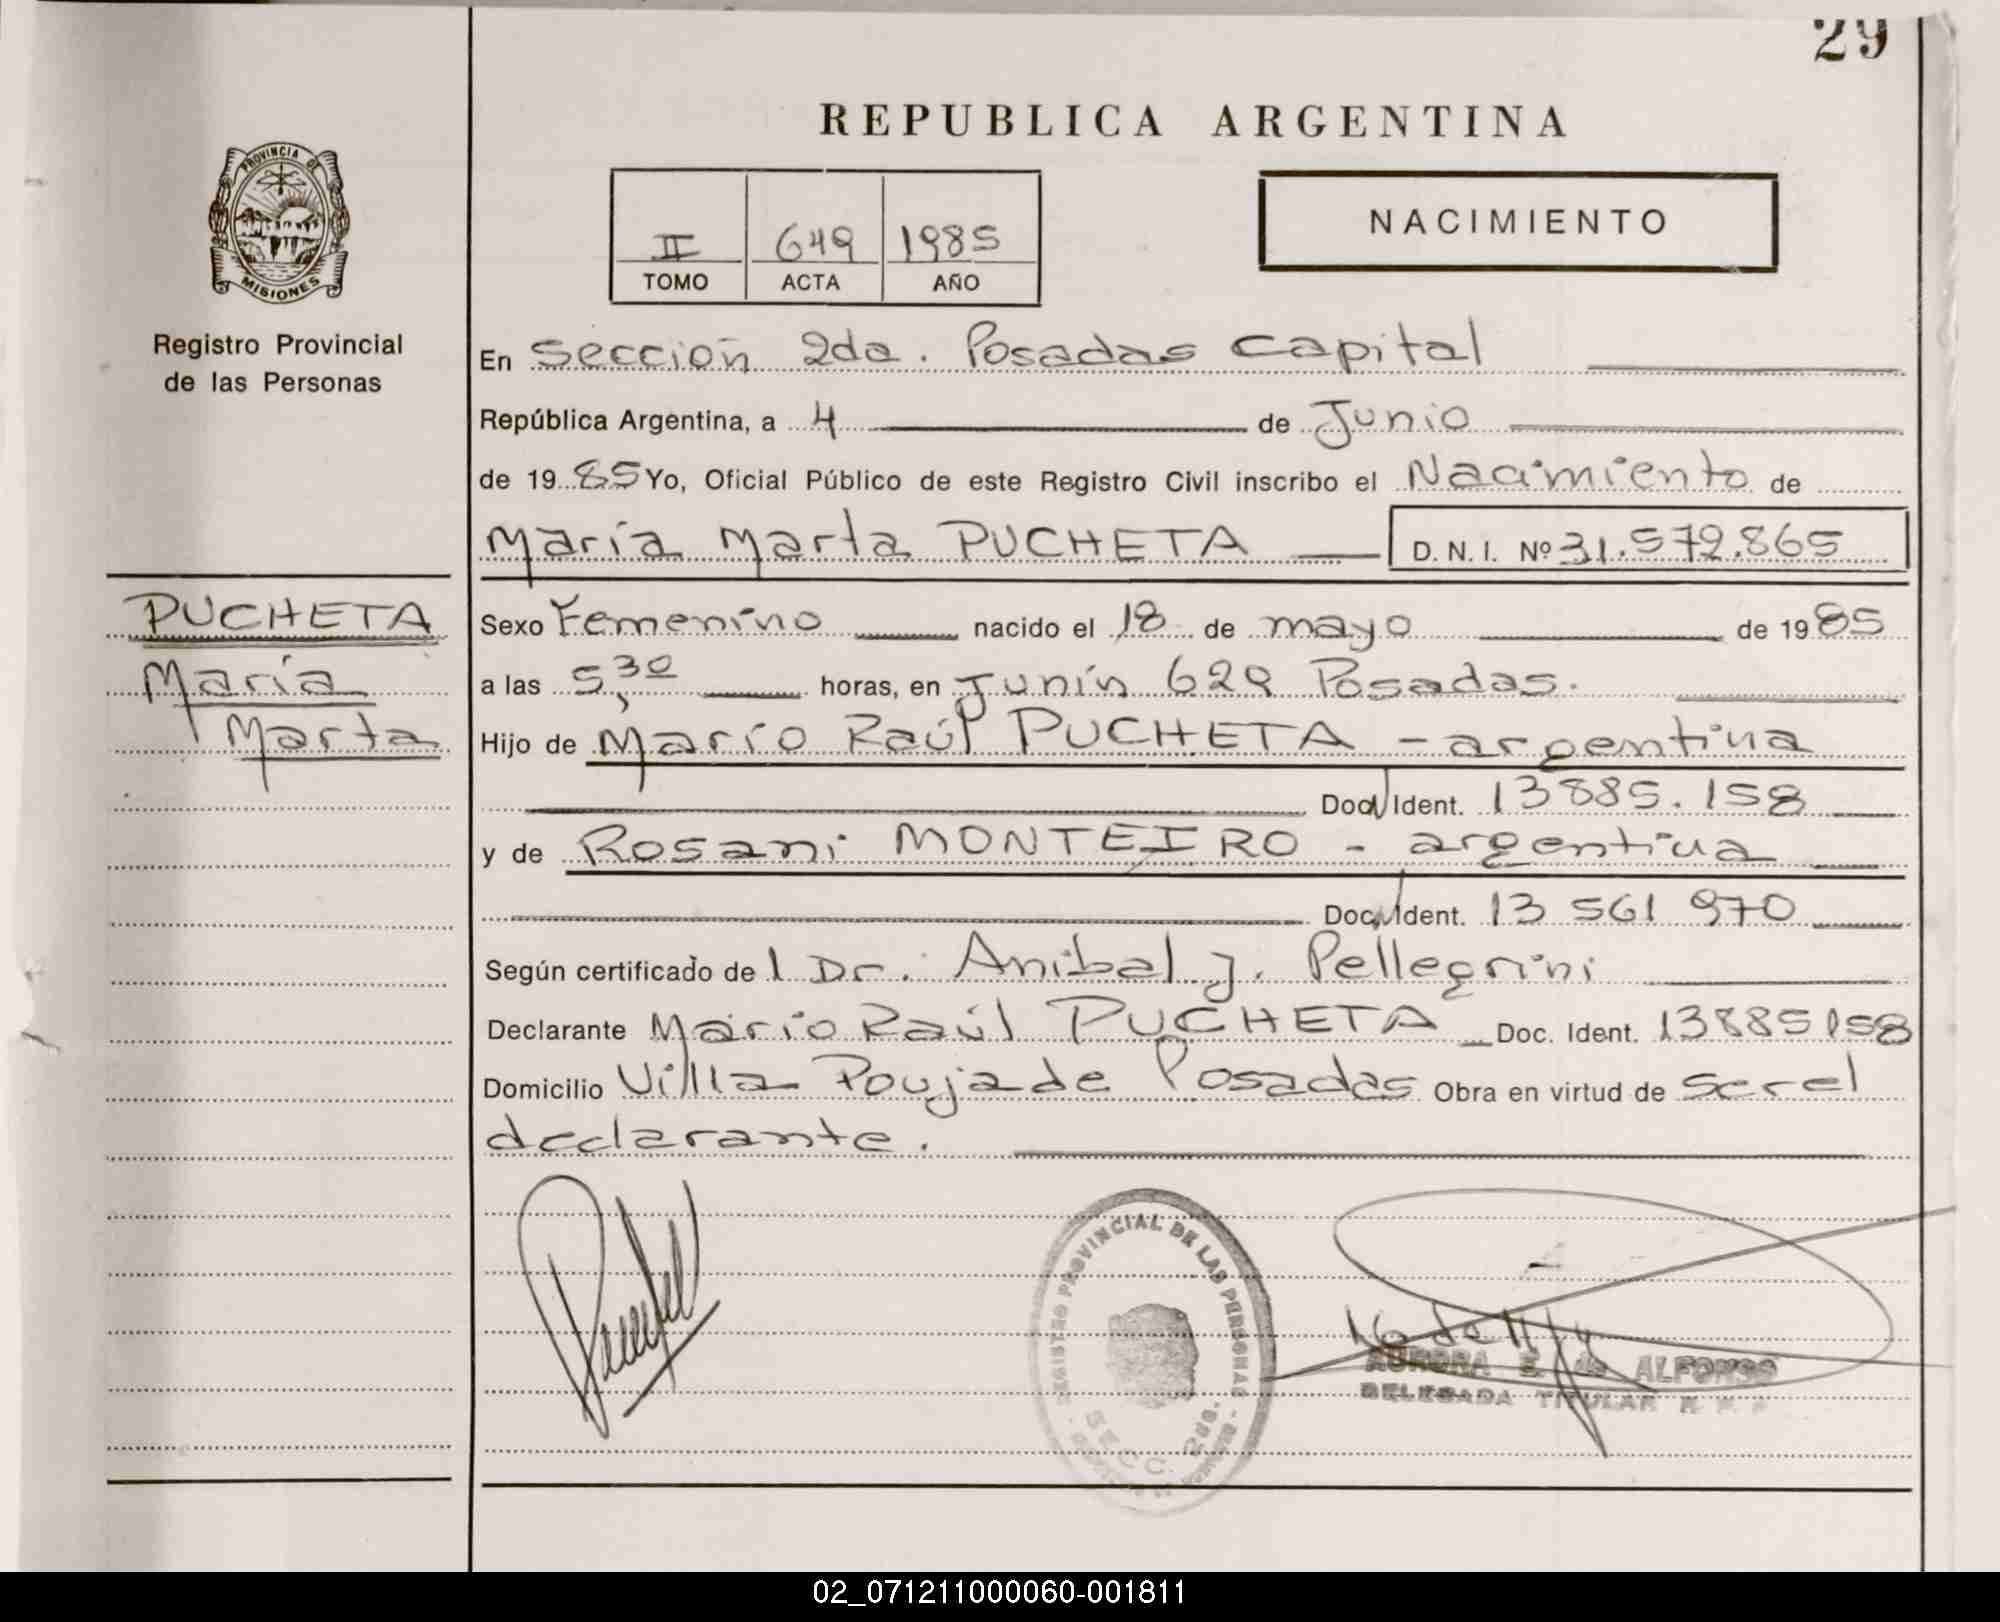 29
REPUBLICA ARGENTINA
PROVINCIA DE
MISIONES
Registro Provincial
de las Personas
II 649 1985
TOMO ACTA AÑO
NACIMIENTO
En Sección 2da. Posadas Capital
República Argentina, a 4 de Junio
de 1985 Yo, Oficial Público de este Registro Civil inscribo el Nacimiento de
María Marta PUCHETA D. N. I. Nº 31.572.865
PUCHETA
María
Marta
Sexo Femenino nacido el 18 de mayo de 1985
a las 5,30 horas, en Junín 629 Posadas.
Hijo de Mario Raúl PUCHETA - argentina
Doc. Ident. 13885.158
y de Rosani MONTEIRO - argentina
Doc. Ident. 13 561 970
Según certificado de l Dr. Anibal J. Pellegrini
Declarante Mario Raúl PUCHETA Doc. Ident. 13885158
Domicilio Villa Poujade Posadas Obra en virtud de ser el
declarante.
REGISTRO PROVINCIAL DE LAS PERSONAS
SECC. 2da.
AURORA E. de ALFONSO
DELEGADA TITULAR
02_071211000060-001811